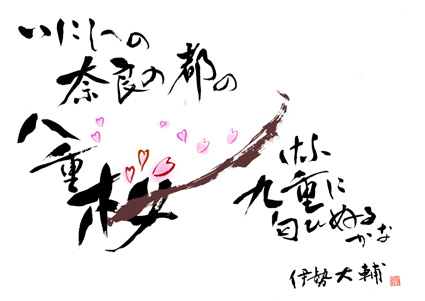 いにしへの
奈良の都の
八重
桜
けふ
九重に
匂ひぬる
かな
伊勢大輔